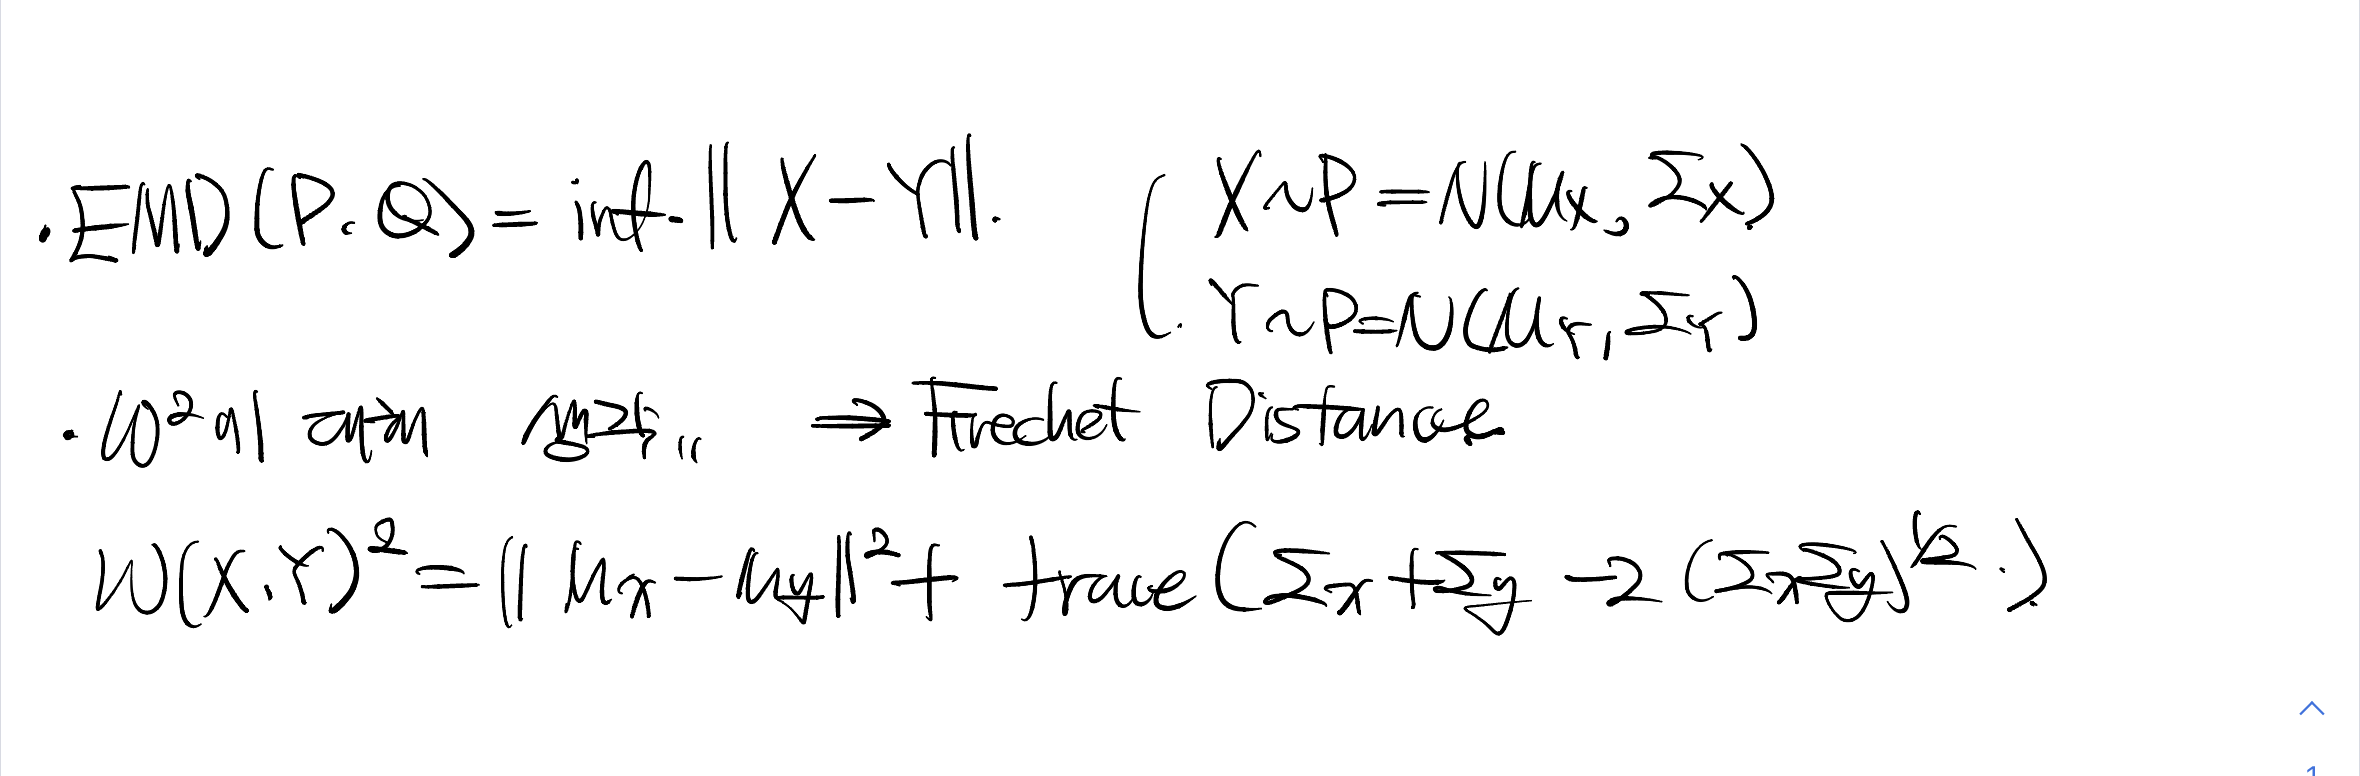 · EMD(P. Q) = inf. || X - Y||. ( X ~ P = N(μx, Σx)
Y ~ P = N(μY, ΣY)
· W²에 → Frechet Distance
W(X.Y)² = || μx - μy ||² + trace (Σx + Σy - 2 (ΣxΣy)^½ .)
1